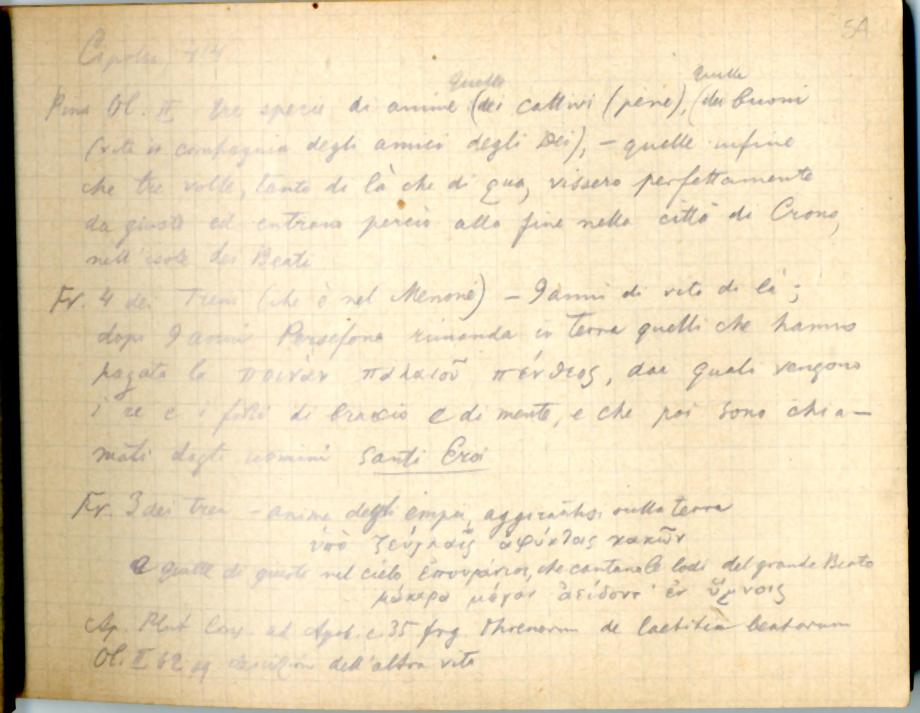 54
Pind Ol. II tre specie di anime quelle (dei cattivi (pene), quelle (dei buoni
(vita in compagnia degli amici degli Dei), – quelle infine
che tre volte, tanto di là che di qua, vissero perfettamente
da giusti ed entrano perciò alla fine nella città di Crono,
nell'isole dei Beati
Fr. 4 dei Treni (che è nel Menone) – 9 anni di vita di là;
dopo 9 anni Persefone rimanda in terra quelli che hanno
pagato la ποινὰν παλαιοῦ πένθεος, dai quali vengono
i re e i forti di braccio e di mente, e che poi sono chia–
mati dagli uomini santi Eroi
Fr. 3 dei treni – anime degli empi, aggirantisi sulla terra
ὑπὸ ζεύγλαις ἀφύκτοις κακῶν
e quelle di giusti nel cielo ἐπουράνιοι, che cantano le lodi del grande Beato
μάκαρα μέγαν ἀείδοντ' ἐν ὕμνοις
Ap. Plut Cons. ad Apoll. c. 35 frg. threnorum de laetitia beatorum
Ol. II 62 sq descrizione dell'altra vita